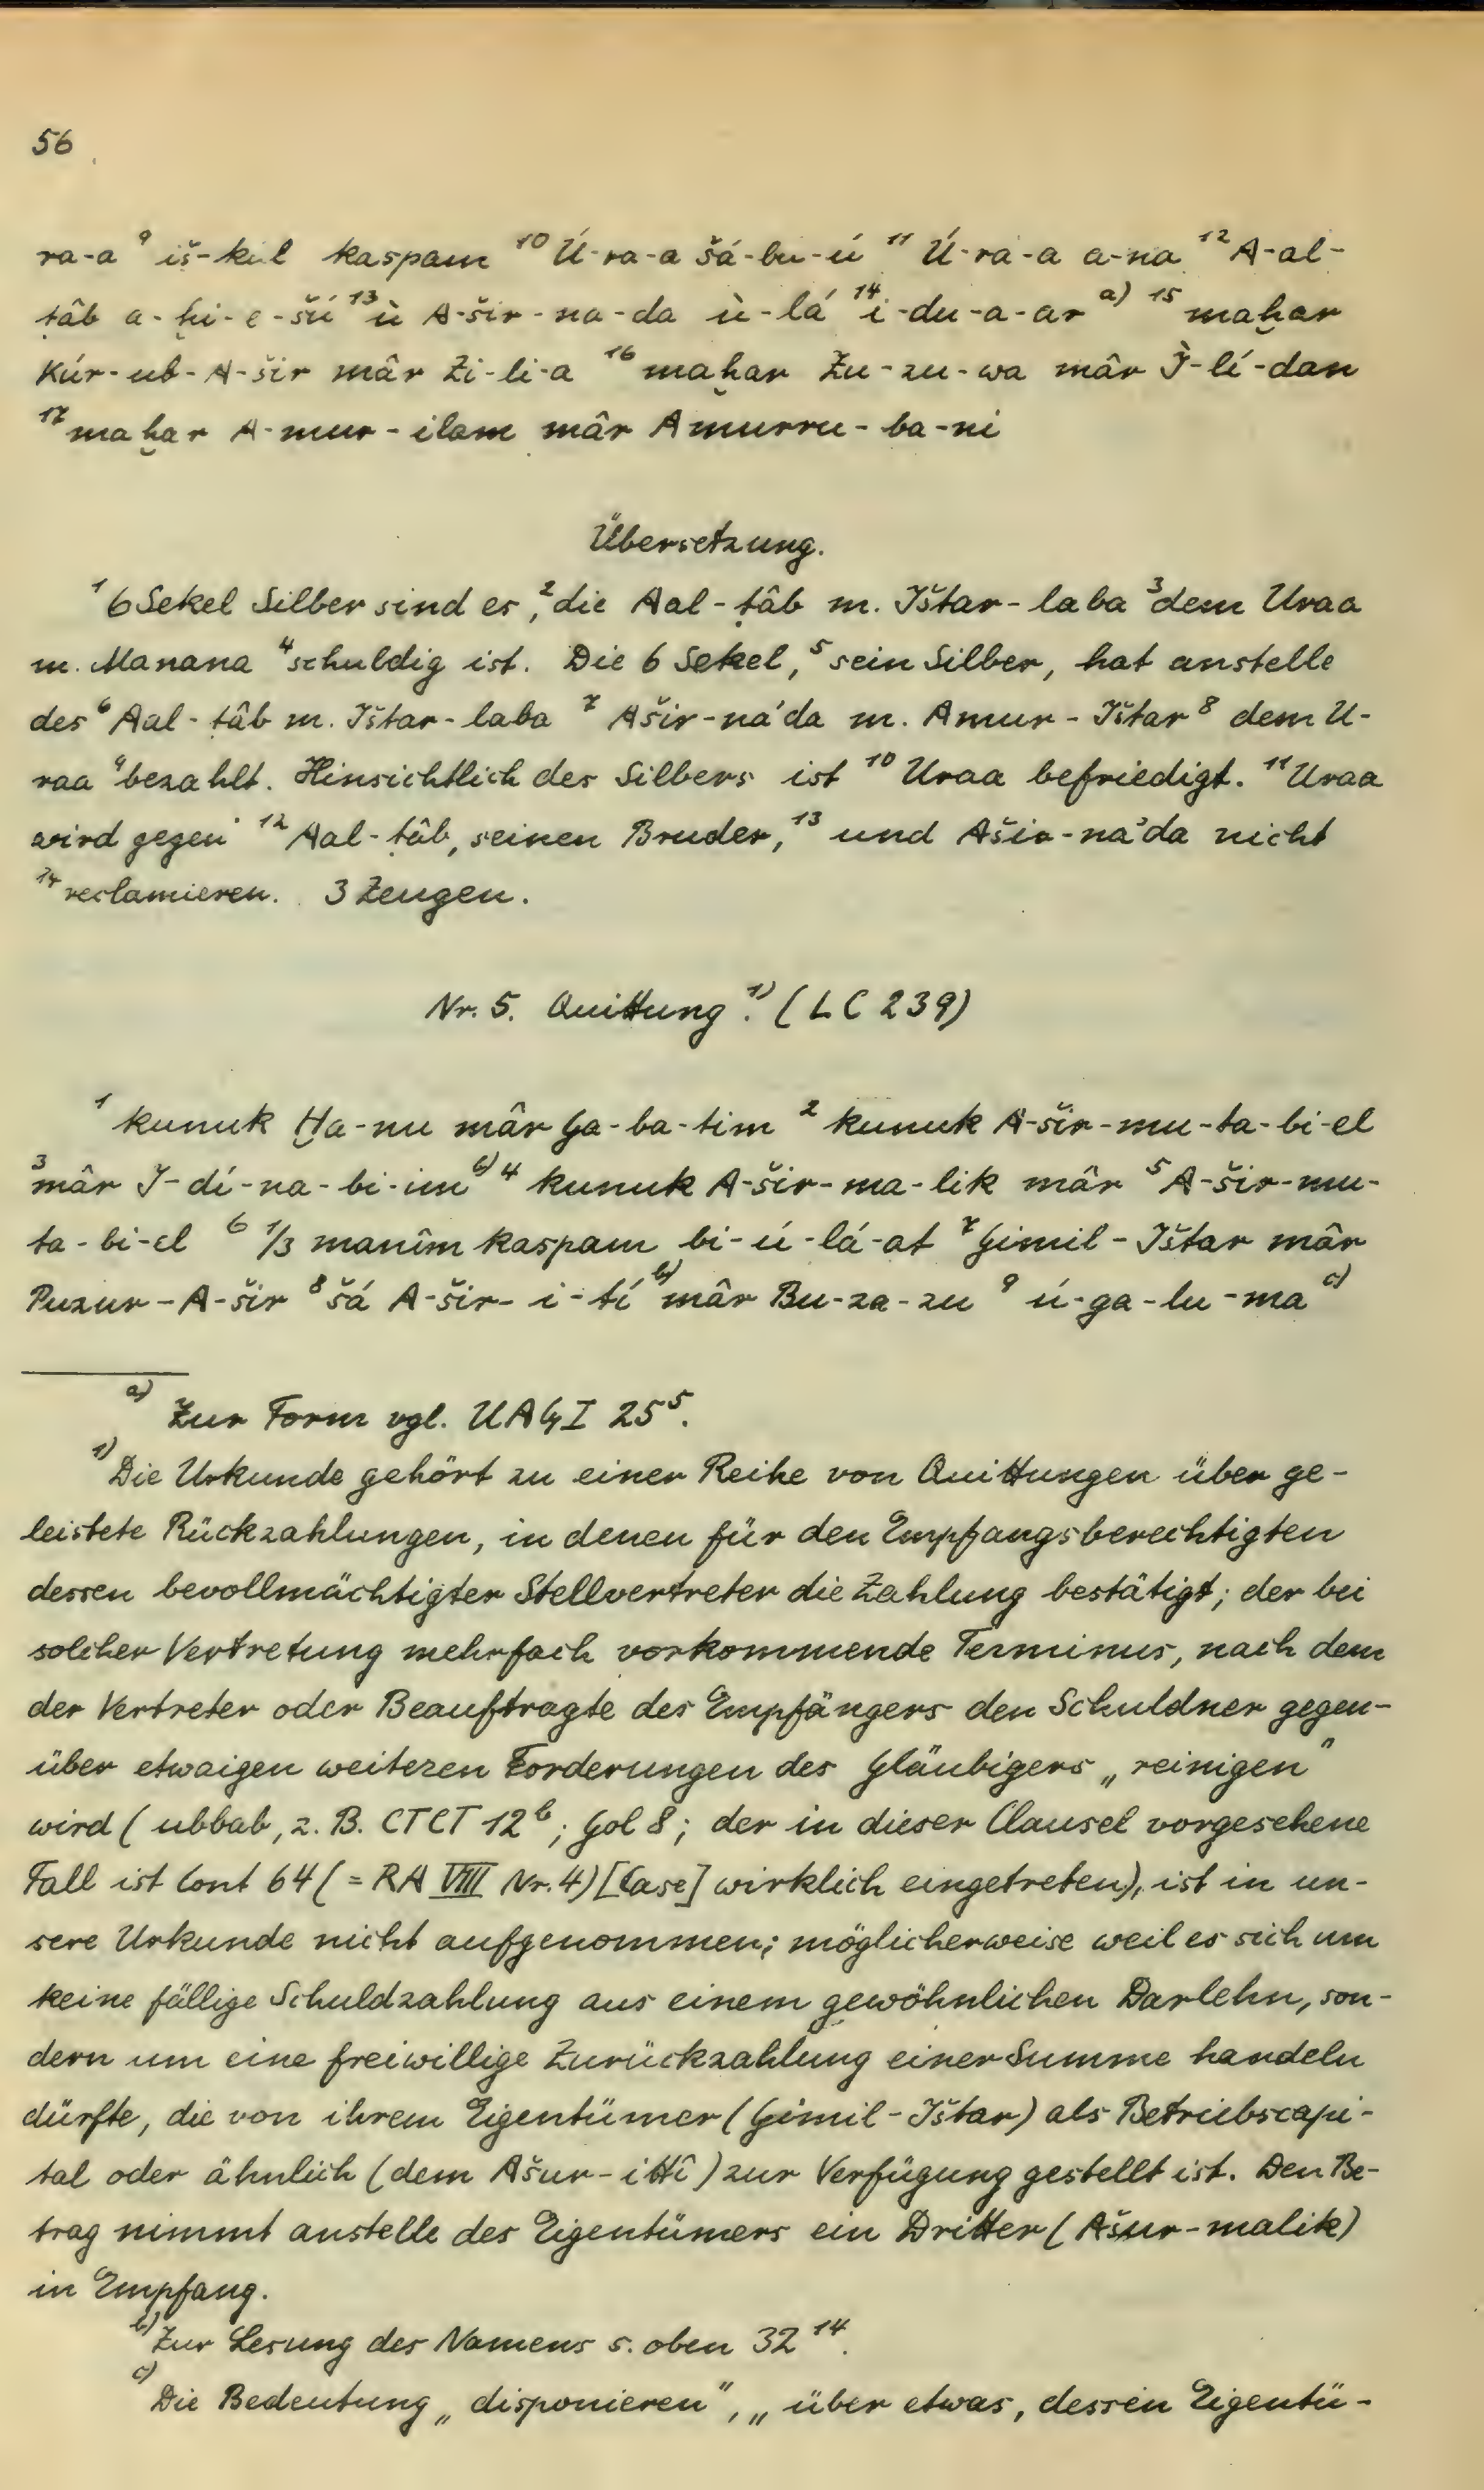 56
ra-a ⁹ iš-kul kaspam ¹⁰ Ú-ra-a šá-bu-ú ¹¹ Ú-ra-a a-na ¹² A-al-
ṭâb a-ḫi-e-šú ¹³ ù A-šir-na-da ù-lá ¹⁴ i-du-a-ar ᵃ⁾ ¹⁵ maḫar
Kúr-ub-A-šir mâr Zi-li-a ¹⁶ maḫar Zu-zu-wa mâr Ì-lí-dan
¹⁷ maḫar A-mur-ilam mâr Amurru-ba-ni
Übersetzung.
¹ 6 Sekel Silber sind es, ² die Aal-ṭâb m. Ištar-laba ³ dem Uraa
m. Manana ⁴ schuldig ist. Die 6 Sekel, ⁵ sein Silber, hat anstelle
des ⁶ Aal-ṭâb m. Ištar-laba ⁷ Ašir-na'da m. Amur-Ištar ⁸ dem U-
raa ⁹ bezahlt. Hinsichtlich des Silbers ist ¹⁰ Uraa befriedigt. ¹¹ Uraa
wird gegen ¹² Aal-ṭâb, seinen Bruder, ¹³ und Ašir-na'da nicht
¹⁴ reclamieren. 3 Zeugen.
Nr. 5. Quittung ¹⁾. (LC 239)
¹ kunuk Ḫa-nu mâr Ga-ba-tim ² kunuk A-šir-mu-ta-bi-el
³ mâr I-dí-na-bi-im ᵇ⁾ ⁴ kunuk A-šir-ma-lik mâr ⁵ A-šir-mu-
ta-bi-el ⁶ 1/3 manîm kaspam bi-ú-lá-at ⁷ Gimil-Ištar mâr
Puzur-A-šir ⁸ šá A-šir-i-tí ᵇ⁾ mâr Bu-za-zu ⁹ ú-ga-lu-ma ᶜ⁾
ᵃ⁾ Zur Form vgl. UAG I 25⁵.
¹⁾ Die Urkunde gehört zu einer Reihe von Quittungen über ge-
leistete Rückzahlungen, in denen für den Empfangsberechtigten
dessen bevollmächtigter Stellvertreter die Zahlung bestätigt; der bei
solcher Vertretung mehrfach vorkommende Terminus, nach dem
der Vertreter oder Beauftragte des Empfängers den Schuldner gegen-
über etwaigen weiteren Forderungen des Gläubigers „reinigen"
wird (ubbab, z. B. CTCT 12ᵇ; Gol 8; der in dieser Clausel vorgesehene
Fall ist Cont 64 (= RA VIII Nr. 4) [Case] wirklich eingetreten), ist in un-
sere Urkunde nicht aufgenommen; möglicherweise weil es sich um
keine fällige Schuldzahlung aus einem gewöhnlichen Darlehn, son-
dern um eine freiwillige Zurückzahlung einer Summe handeln
dürfte, die von ihrem Eigentümer (Gimil-Ištar) als Betriebscapi-
tal oder ähnlich (dem Ašur-ittî) zur Verfügung gestellt ist. Den Be-
trag nimmt anstelle des Eigentümers ein Dritter (Ašur-malik)
in Empfang.
ᵇ⁾ Zur Lesung des Namens s. oben 32¹⁴.
ᶜ⁾ Die Bedeutung „disponieren", „über etwas, dessen Eigentü-